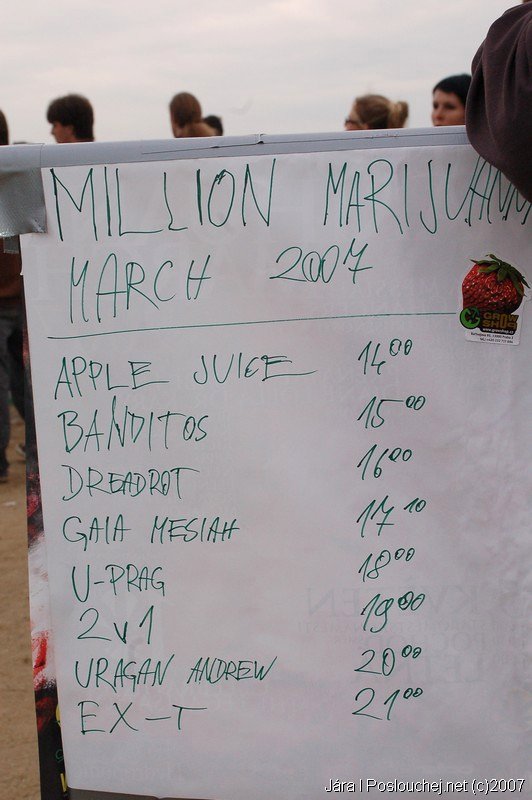 MILLION MARIJUANA
MARCH 2007
APPLE JUICE 14⁰⁰
BANDITOS 15⁰⁰
DREADROT 16⁰⁰
GAIA MESIAH 17¹⁰
U-PRAG 18⁰⁰
2v1 19⁰⁰
URAGAN ANDREW 20⁰⁰
EX-T 21⁰⁰
Jára l Poslouchej.net (c)2007